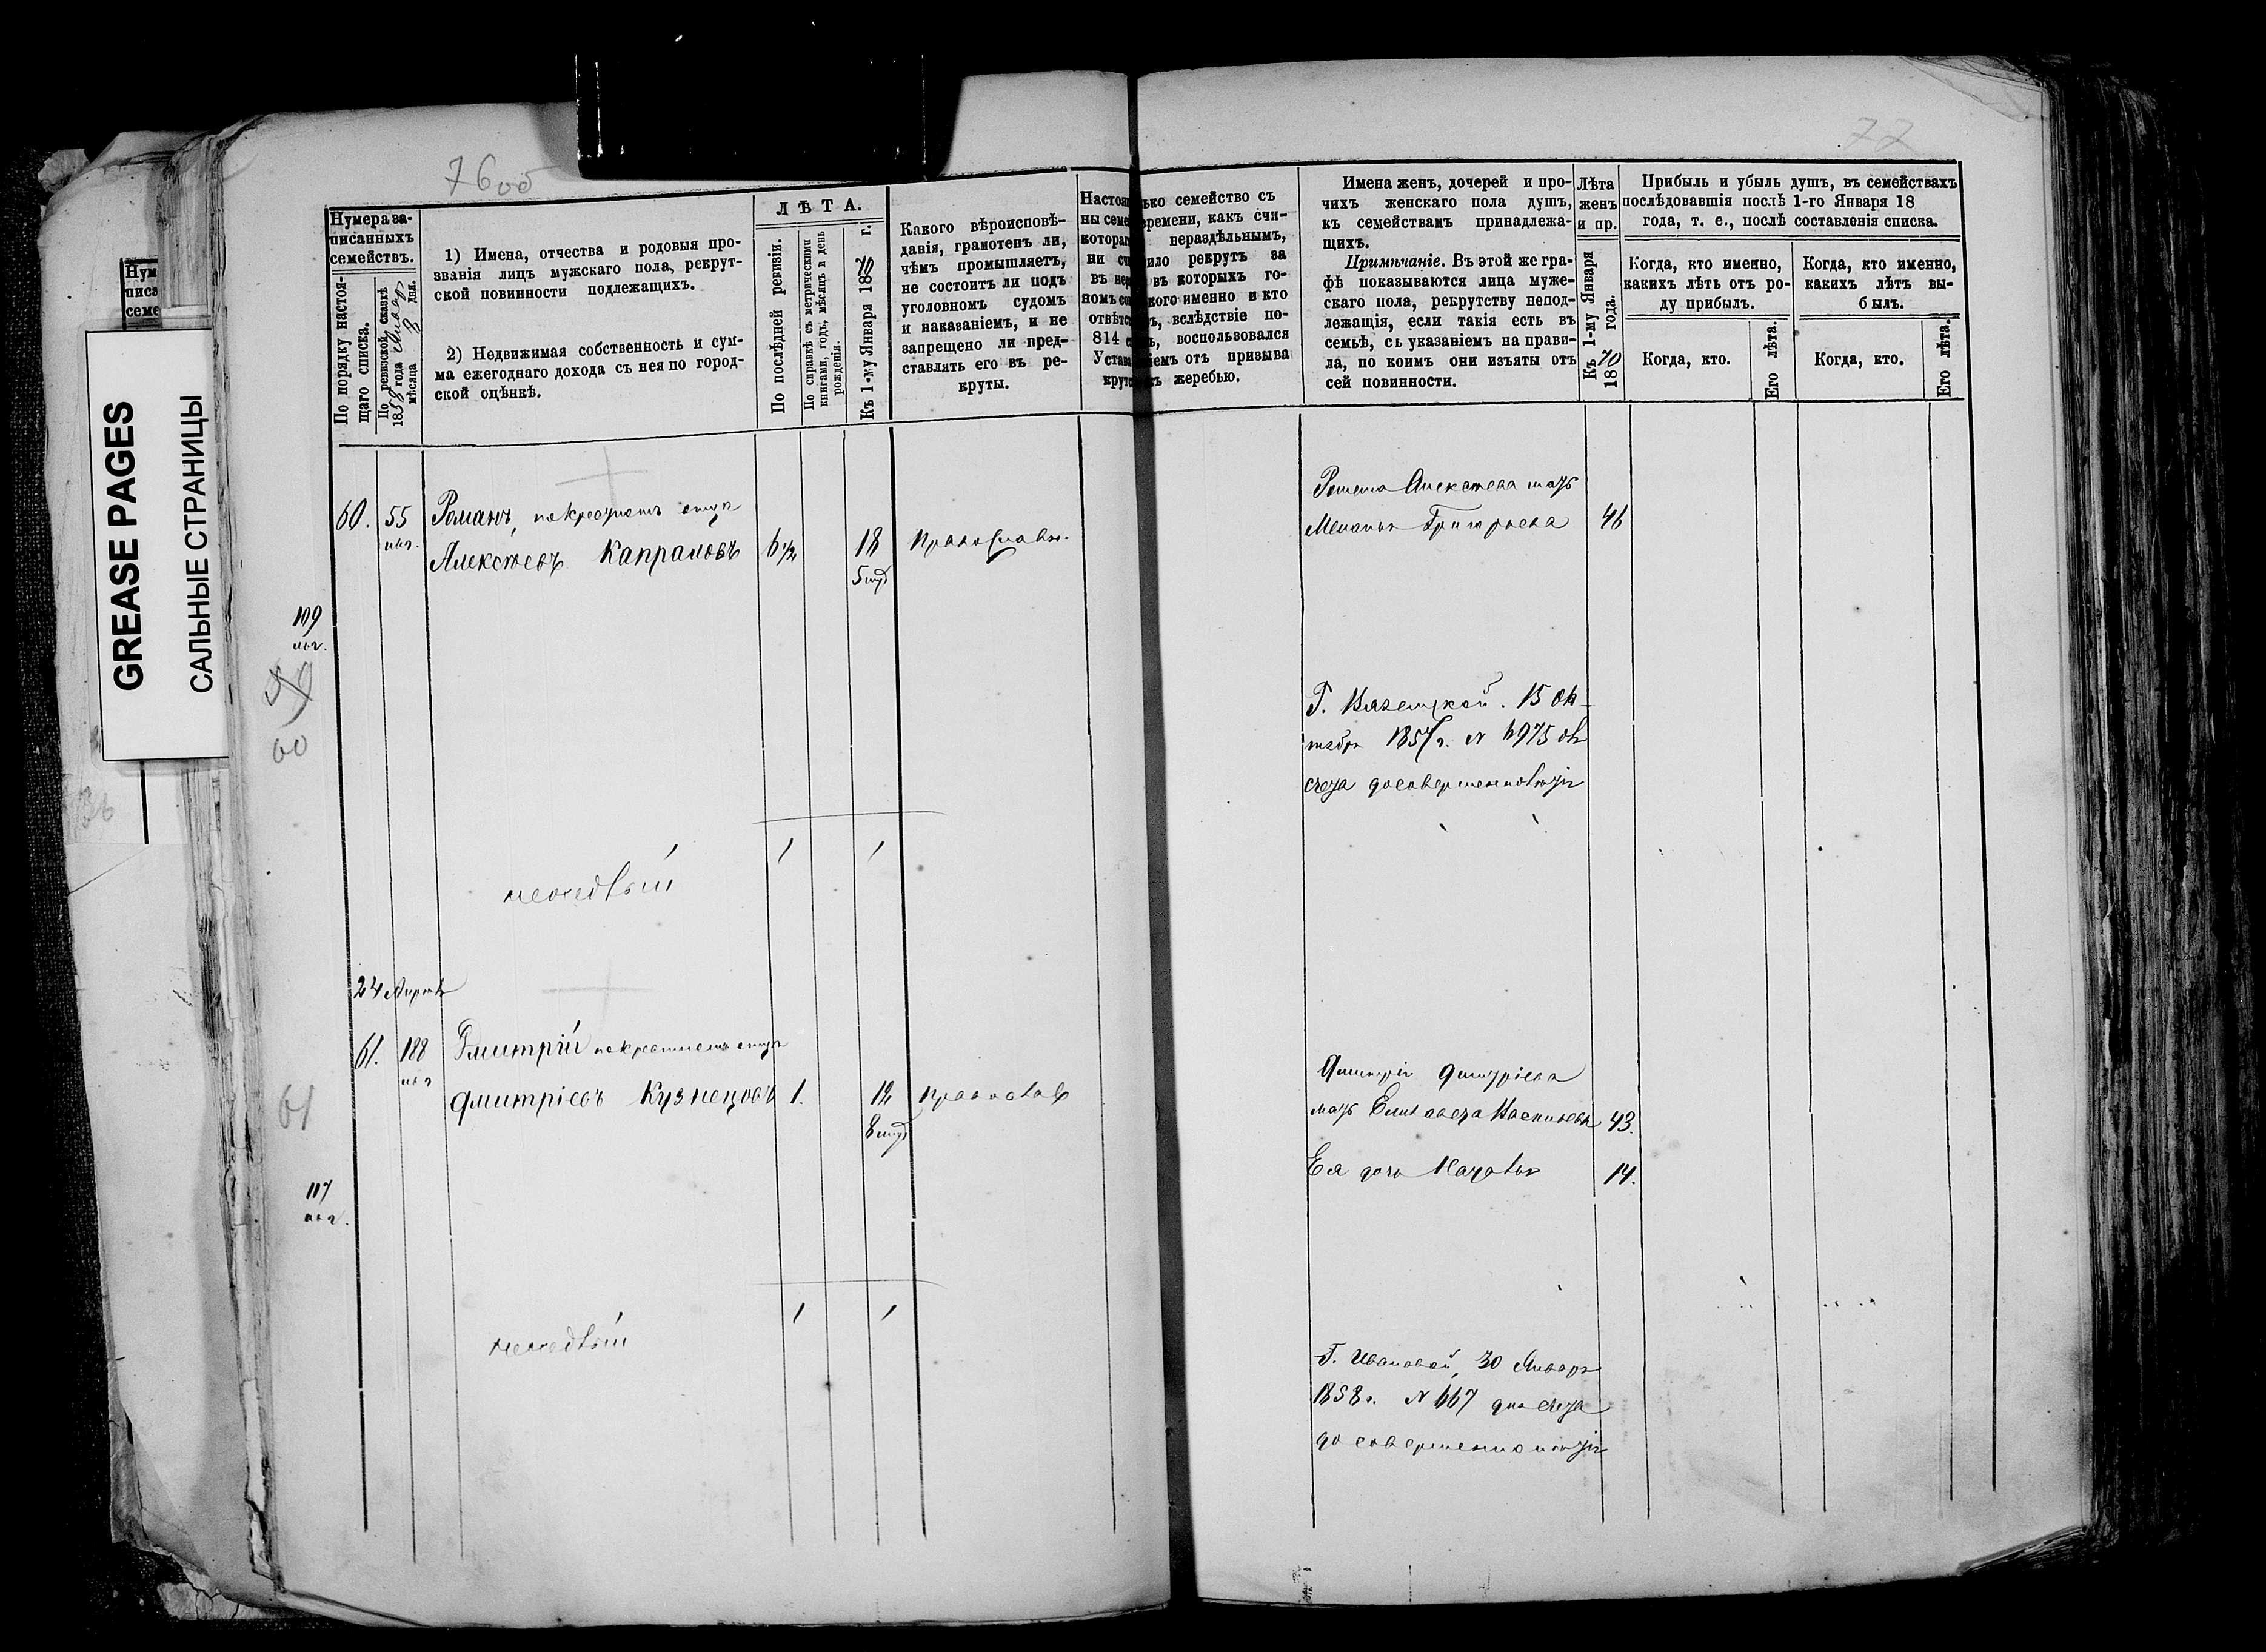 76 об
77
GREASE PAGES
САЛЬНЫЕ СТРАНИЦЫ
Нумера за-
писанныхъ
семействъ.
По порядку настоя-
щаго списка.
По ревизской сказкѣ
1858 года
мѣсяца 8 дня.
1) Имена, отчества и родовыя про-
званія лицъ мужскаго пола, рекрут-
ской повинности подлежащихъ.
2) Недвижимая собственность и сум-
ма ежегоднаго дохода съ нея по город-
ской оцѣнкѣ.
ЛѢТА.
По послѣдней ревизіи.
По справкѣ съ метрическими
книгами, годъ, мѣсяцъ и день
рожденія.
Къ 1-му Января 1870 г.
Какого вѣроисповѣ-
данія, грамотенъ ли,
чѣмъ промышляетъ,
не состоитъ ли подъ
уголовномъ судомъ
и наказаніемъ, и не
запрещено ли пред-
ставлять его въ ре-
круты.
ько семейство съ
времени, какъ счи-
нераздѣльнымъ,
ило рекрутъ за
въ которыхъ го-
кого именно и кто
ъ, вслѣдствіе по-
воспользовался
іемъ отъ призыва
жеребью.
Имена женъ, дочерей и про-
чихъ женскаго пола душъ,
къ семействамъ принадлежа-
щихъ.
Примѣчаніе. Въ этой же гра-
фѣ показываются лица муже-
скаго пола, рекрутству непод-
лежащія, если такія есть въ
семьѣ, съ указаніемъ на прави-
ла, по коимъ они изъяты отъ
сей повинности.
Лѣта
женъ
и пр.
Къ 1-му Января
1870 года.
Прибыль и убыль душъ, въ семействахъ
послѣдовавшія послѣ 1-го Января 18
года, т. е., послѣ составленія списка.
Когда, кто именно,
какихъ лѣтъ отъ ро-
ду прибылъ.
Когда, кто.
Его лѣта.
Когда, кто именно,
какихъ лѣтъ вы-
былъ.
Когда, кто.
Его лѣта.
60. 55 Романъ, по крестномъ отцѣ
Алексѣевъ Капраловъ 6 1/2 18 Православн.
Романа Алексѣева мать
Меланья Григорьева 46
109
60
Г. Вяземской. 15 Ок-
тября 1857 г. N 6975 об
счета до совершеннолѣтія
1 1
24 Апрѣль
61. 188 Дмитрій по крестномъ отцѣ
Дмитріевъ Кузнецовъ 1. 12 Православ
61
Дмитрія Дмитріева
мать Елизавета 43.
Ея дочь 14.
117
1 1
Г. Ивановой, 30 Января
1858 г. N 667 для счета
до совершеннолѣтія